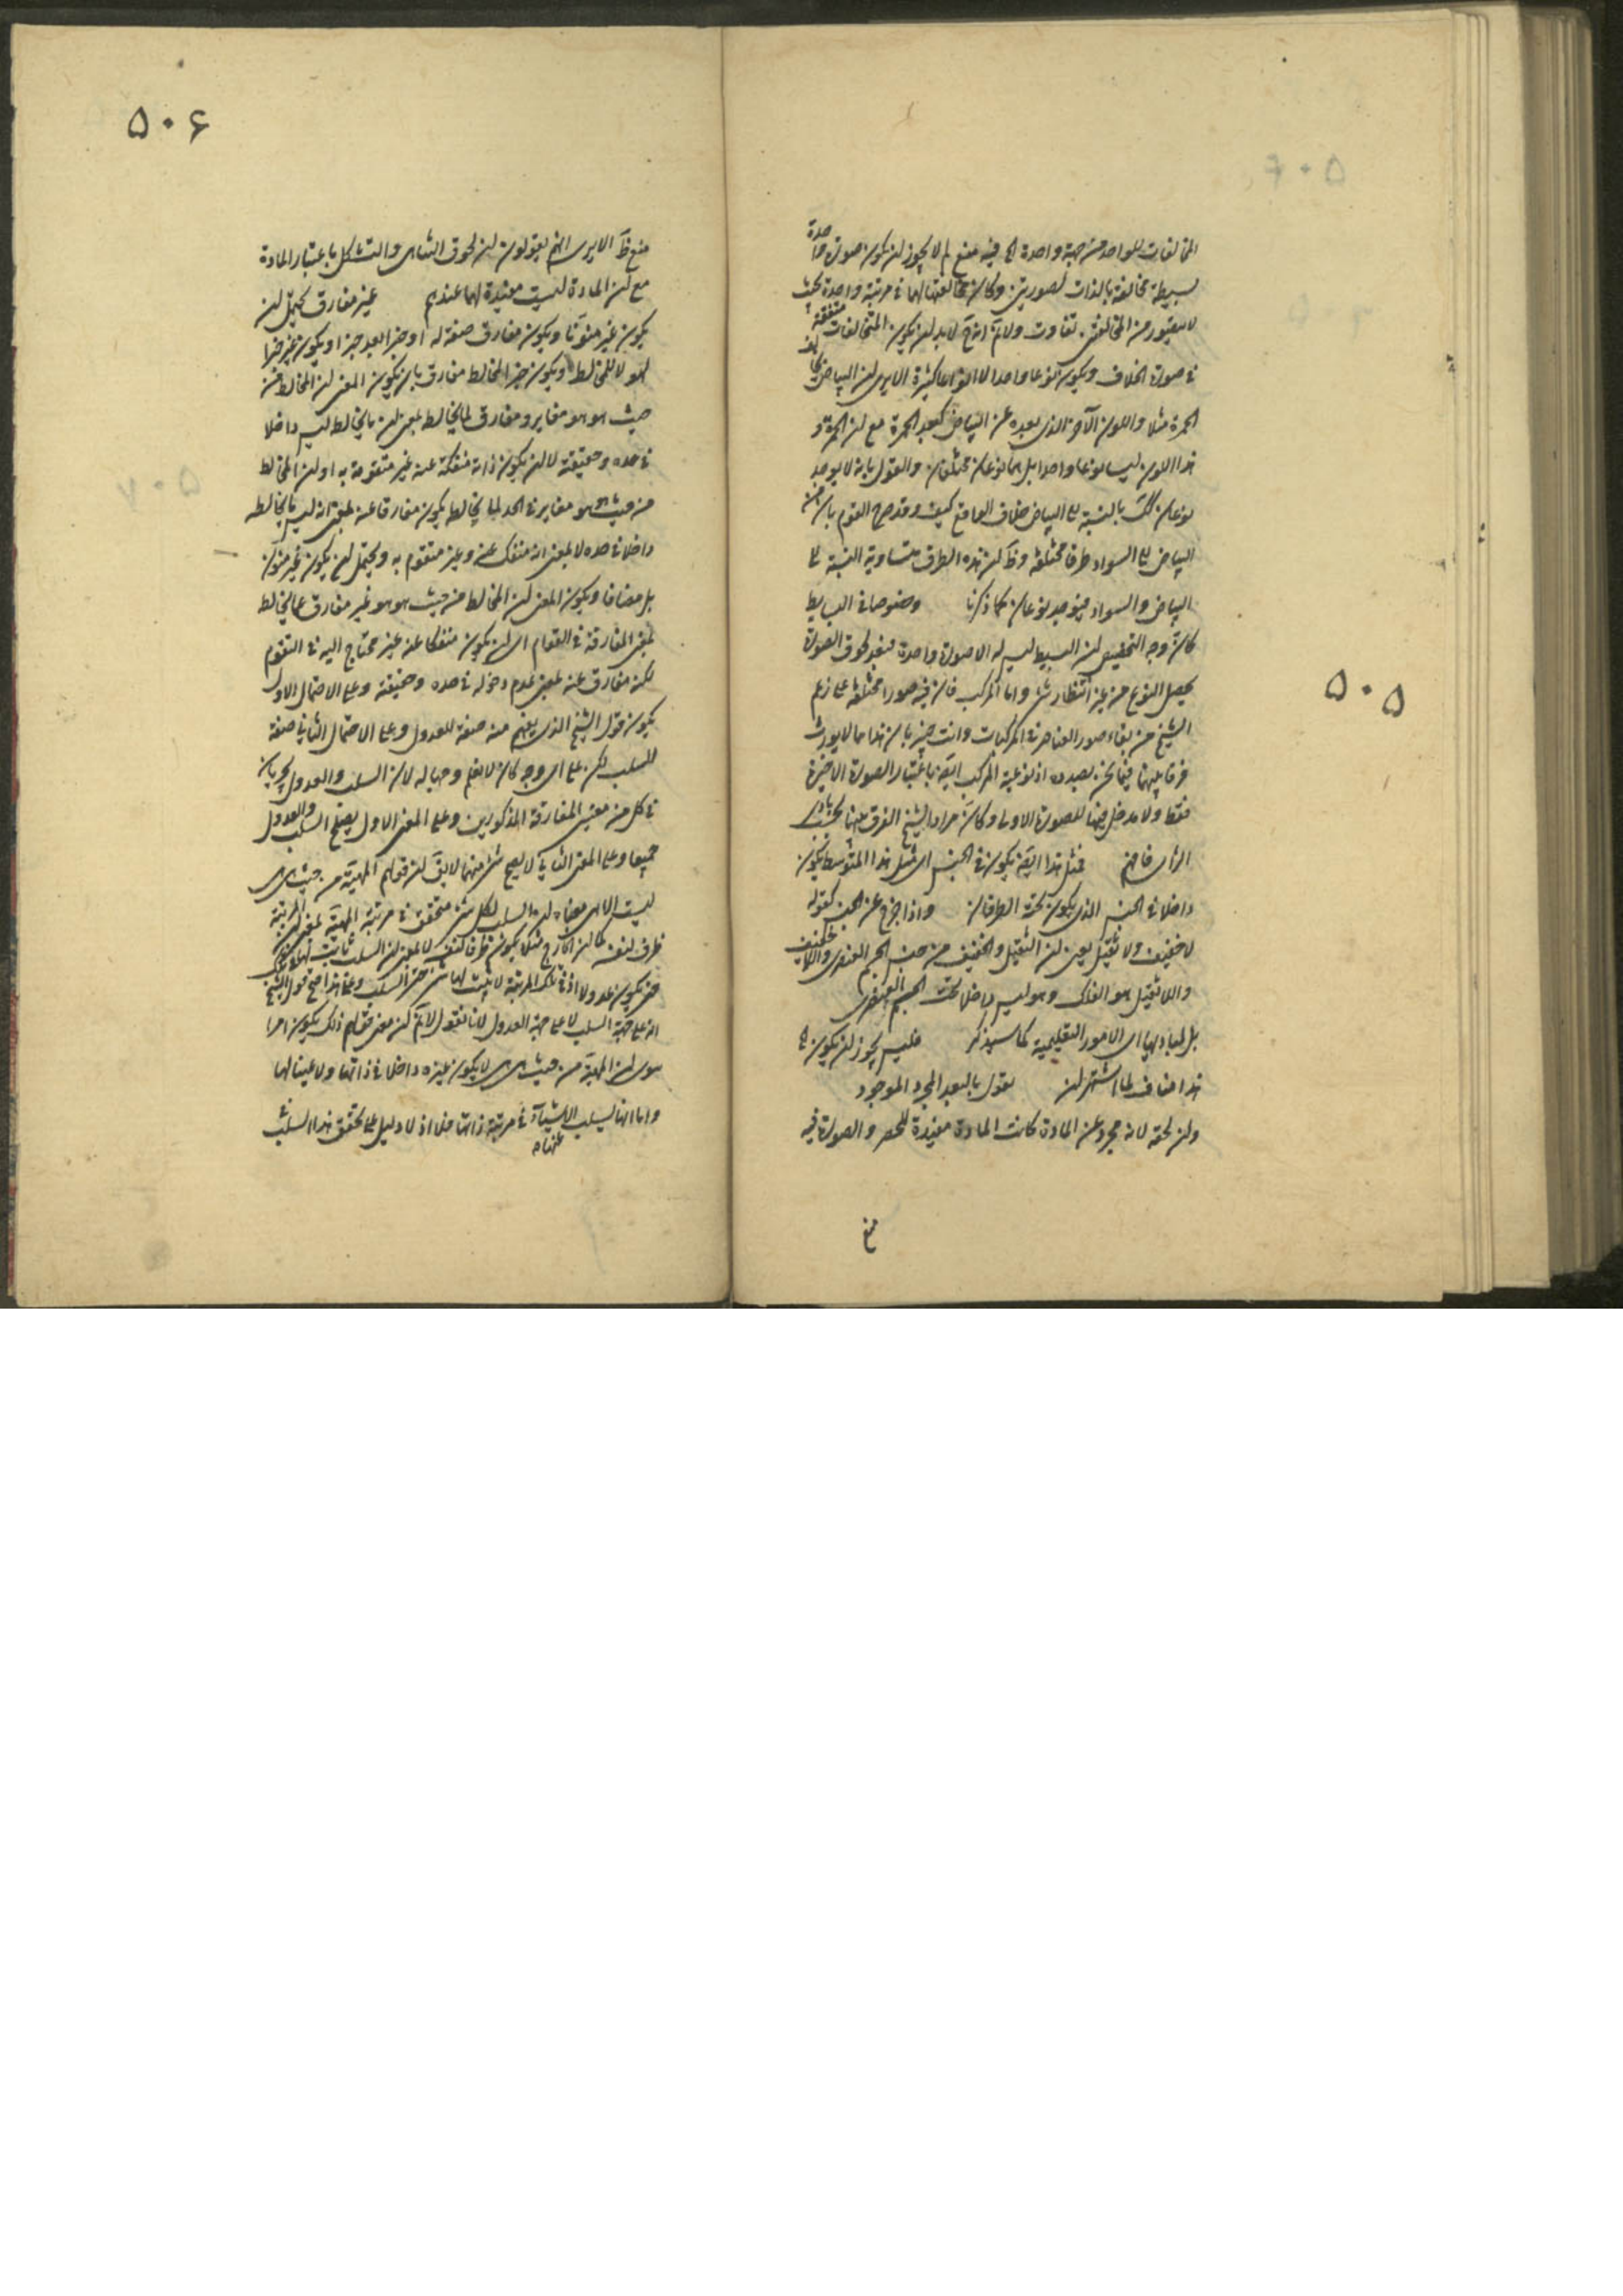 ۵۰۵
المخالفات للواحد من جهة واحدة الخ فيه منع لم لا يجوز ان يكون صورة واحدة
بسيطة مخالفة بالذات لصورتين وكان مخالفتها لهما في مرتبة واحدة بحيث
لا يتصور من المخالفتين تفاوت ولا نم انه ح لا بد ان يكون المتخالفات متفقة
في صورة الخلاف ويكون نوعا واحدا لا انواعا كثيرة الا يرى ان البياض يخالف
الحمرة مثلا واللون الآخر الذي بعده عن البياض كبعد الحمرة مع ان الحمرة و
هذا اللون ليسا نوعا واحدا بل هما نوعان مختلفان والقول بانه لا يوجد
نوعان كك بالنسبة الى البياض خلاف الواقع كيف وقد صرح القوم بان من
البياض الى السواد طرقا مختلفة وظ ان هذه الطرق متساوية النسبة الى
البياض والسواد فيوجد نوعان كما ذكرنا وخصوصا في البسايط
كان وجه التخصيص ان البسيط ليس له الا صورة واحدة فبعد لحوق الصورة
يحصل النوع من غير انتظار شئ واما المركب فان فيه صورا مختلفة على زعم
الشيخ من بقاء صور العناصر في المركبات وانت خبير بان هذا مما لا يورث
فرقا بينهما فيما نحن بصدده اذ نوعية المركب ايضا باعتبار الصورة الاخيرة
فقط ولا مدخل فيها للصورة الاولى وكان مراد الشيخ الفرق بينهما بحسب بادى
الرأى فافهم فمثل هذا ايضا يكون في الجنس اى مثل هذا المتوسط يكون
داخلا في الجنس الذي يكون تحته الطرفان واذا خرج عن الجنس كقوله
لا خفيف ولا ثقيل يعنى ان الثقيل والخفيف من جنس الجسم العنصرى واللاخفيف
واللاثقيل هو الفلك وهو ليس داخلا تحت الجسم العنصرى
بل لمباديها اى الامور التعليمية كما سيذكر فليس يجوز ان يكون الخ
هذا مناف لما اشتهر ان يقول بالبعد المجرد الموجود
وان لحقه لانه مجرد عن المادة كانت المادة مفيدة للحصر والصورة فيه
منع
۵۰۶
منع ظ الا يرى انهم يقولون ان لحوق التناهى والتشكل باعتبار المادة
مع ان المادة ليست مفيدة لهما عندهم غير مفارق يحتمل ان
يكون غير منونا ويكون مفارق صفة له او خبرا بعد خبر او يكون غير خبرا
لهو لا للمخالط ويكون خبر المخالط مفارق بان يكون المعنى ان المخالط من
حيث هو هو مغاير ومفارق لما يخالط بمعنى ان ما يخالط ليس داخلا
في حده وحقيقته لا ان يكون ذاته منفكة عنه غير متقومة به او ان المخالط
من حيث هو هو مغاير في الحد لما يخالط يكون مفارقا عنه بمعنى انه ليس ما يخالطه
داخلا في حده لا بمعنى انه منفك عنه وغير متقوم به ويحتمل ان يكون غير منون
بل مضافا ويكون المعنى ان المخالط من حيث هو هو غير مفارق عما يخالط
بمعنى المفارقة في القوام اى ان يكون منفكا عنه غير محتاج اليه في التقوم
لكنه مفارق عنه بمعنى عدم دخوله في حده وحقيقته وعلى الاحتمال الاول
يكون قول الشيخ الذي يفهم منه صفة للعدول وعلى الاحتمال الثاني صفة
للسلب لكن على اى وجه كان لا نعلم وجها له لان السلب والعدول يجريان
في كل من معنيى المفارقة المذكورين وعلى المعنى الاول يصلح السلب والعدول
جميعا وعلى المعنى الثاني لا يصح شئ منهما لا يق ان قولهم المهية من حيث هى هى
ليست الا هى معناه ان السلب لكل شئ متحقق في مرتبة المهية بمعنى ان المرتبة
ظرف لنفسه كما ان الخارج مثلا يكون ظرفا لنفسه لا بمعنى ان السلب ثابت لها هناك
حتى يكون عدولا اذ في تلك المرتبة لا يثبت لها شئ حتى السلب وعلى هذا صح قول الشيخ
انه على جهة السلب لا على جهة العدول لانا نقول لا نم كون معنى قولهم ذلك يكون امرا
سوى ان المهية من حيث هى هى لا يكون غيره داخلا في ذاتها ولا عينا لها
واما انها يسلب الاشياء عنها في مرتبة ذاتها فلا اذ لا دليل على تحقق هذا السلب